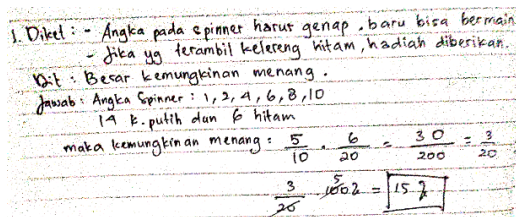 1. Diket : - Angka pada spinner harus genap, baru bisa bermain
- Jika yg terambil kelereng hitam, hadiah diberikan.
Dit : Besar kemungkinan menang.
Jawab : Angka Spinner : 1, 2, 4, 6, 8, 10
14 k. putih dan 6 hitam
maka kemungkinan menang : 5/10 . 6/20 = 30/200 = 3/20
3/20 . 100% = 15 %